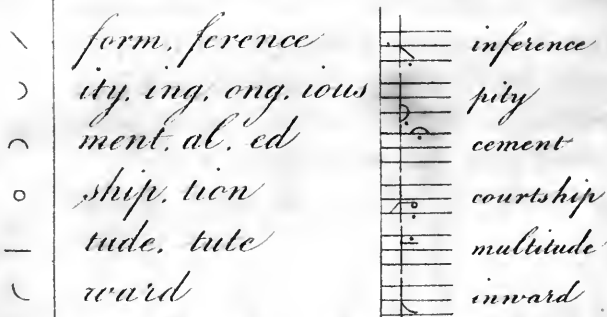 form, ference inference
ity, ing, ong, ious pity
ment, al, ed cement
ship, tion courtship
tude, tute multitude
ward inward